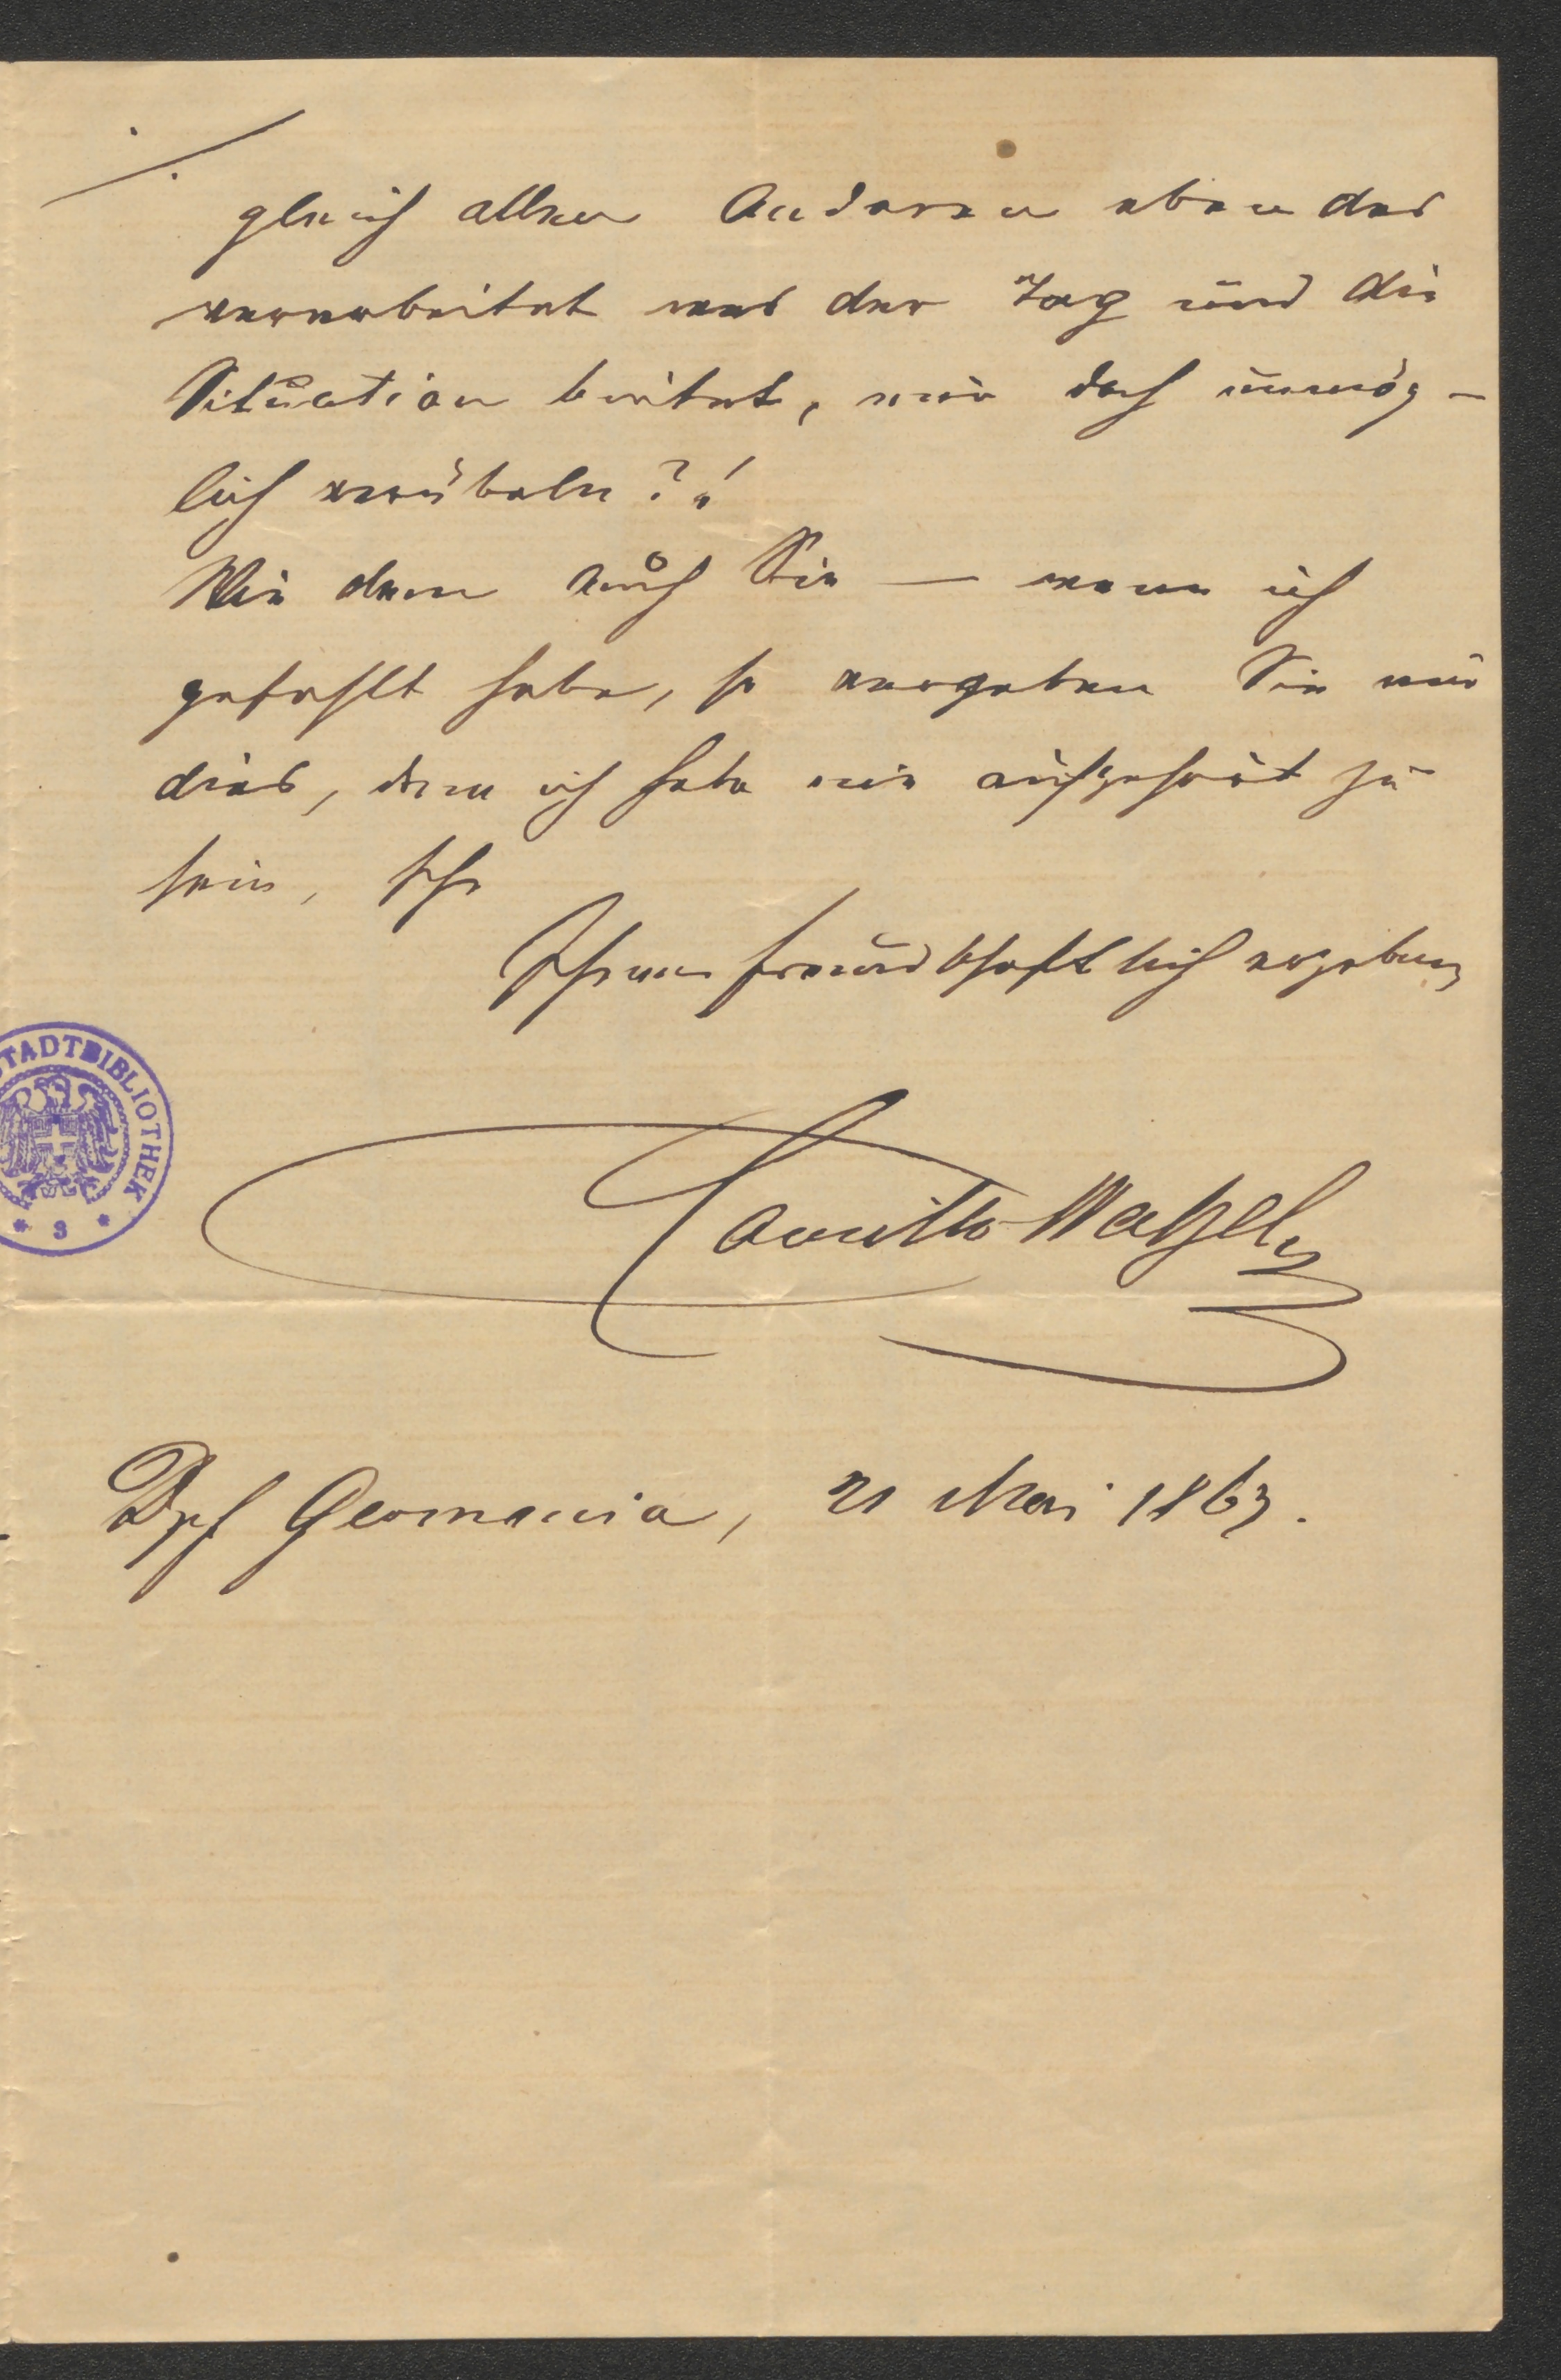 ./.
gleich allen Anderen eben das
verarbeitet was der Tag und die
Situation bietet, mir doch unmög-
lich verübeln?!
Wie dem auch sei — wenn ich
gefehlt habe, so vergeben Sie mir
dies, denn ich habe nie aufgehört zu
sein, Ihr
Ihnen freundschaftlich ergebener
Camillo Walzel
Dpf Germania, 21 Mai 1863.
STADTBIBLIOTHEK
* 3 *